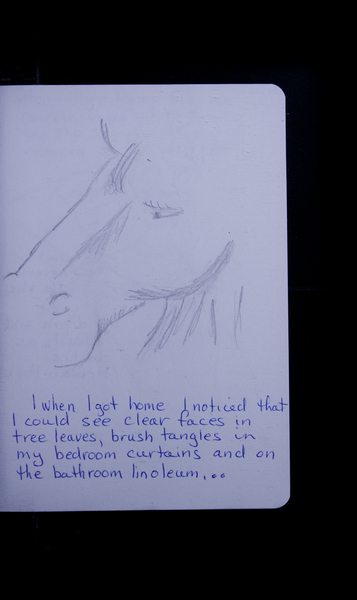 I when I got home I noticed that
I could see clear faces in
tree leaves, brush tangles in
my bedroom curtains and on
the bathroom linoleum,..